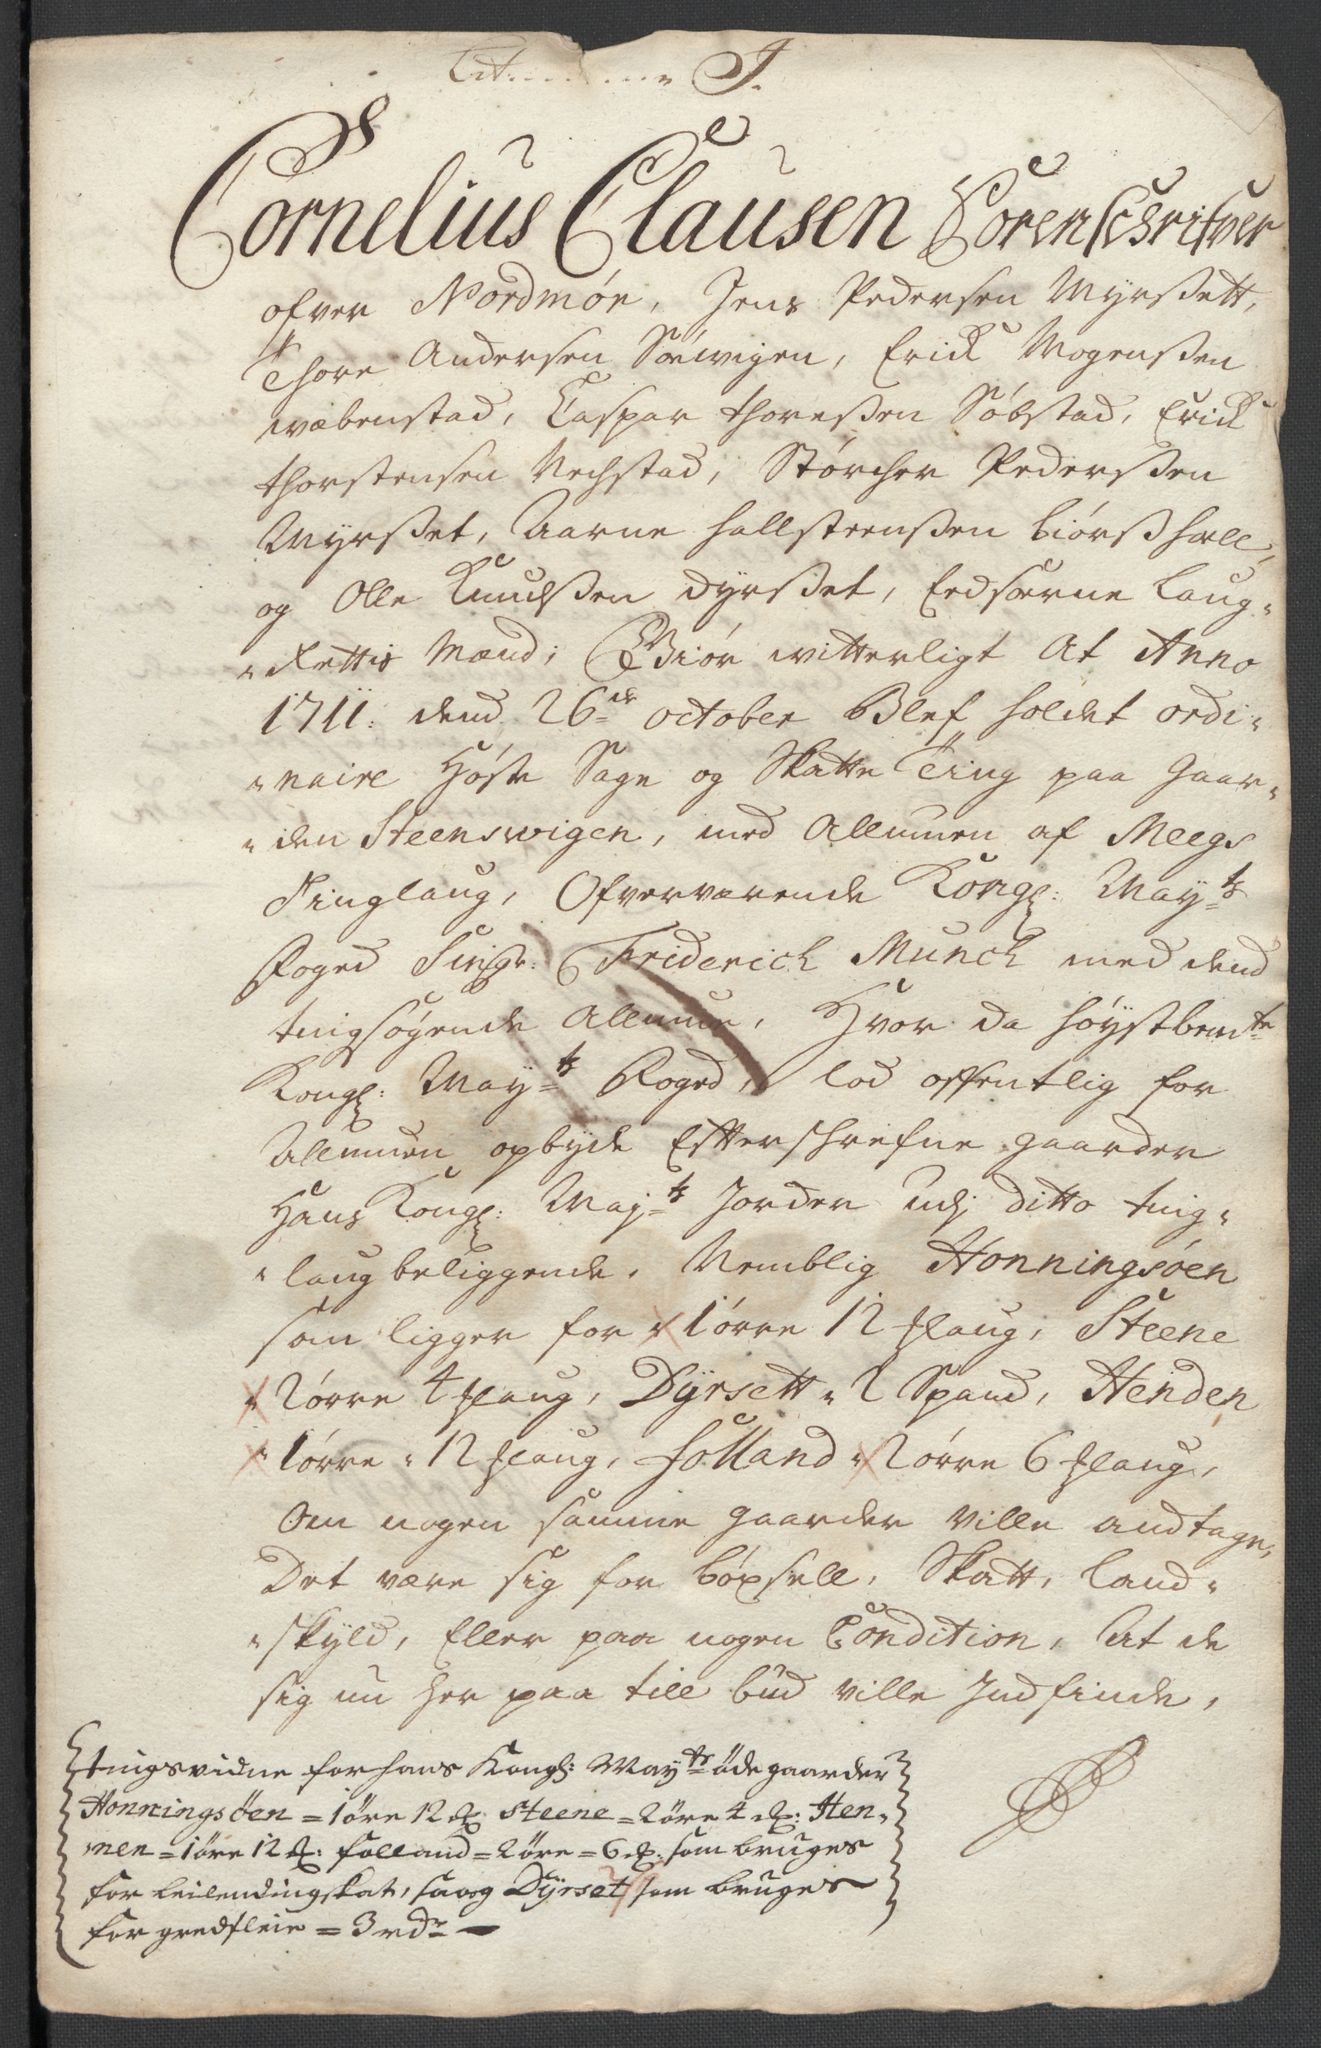 Lit. J.
Cornelius Clausen Sorenschrifver
ofver Nordmör, Jens Pedersen Myrßett,
Thore Andersen Søewigen, Erick Mogenßen
wæbenstad, Caspar thoreßen Söbstad, Erick
thorstensen Nechstad, Störcher Pederßen
Myrßet, Aarne hallsteenßen biörßhæll,
og Olle Knudßen dyrßet, Eedsorne Laug-
-Rettis Mænd; Giör witterligt At Anno
1711: dend 26de october Blef holdet ordi-
-naire Höste Sage og Skatte Ting paa Gaar-
-den Steenswigen, med Allmuen af Meegs
Tinglaug, Ofverværende Kongl: Mayts
Foged Singr. Friderich Munck med dend
tingsögende Allmue, Hvor da höystbemte
Kongl: Mayts Foged, lod offentlig for
Allmuen opbyde Efterschrefne gaarder
Hans Kongl: Majts Jorder udj ditto ting-
-laug beliggende. Nemblig Honningsöen
som ligger for 1 örre 12 Mlaug, Steene
2 örre 4 Mlaug, Dyrsett 2 Spand, Henden
1 örre 12 Mlaug, folland 2 örre 6 Mlaug,
Om nogen samme gaarder ville andtage,
Det være sig for böxsell, Skatt, Land-
-skyld, Eller paa nogen Condition, At de
sig nu her paa till bud ville Indfinde,
tingsvidne for hans Kongl: Mayts öde gaarder
Honningsöen = 1 öre 12 Mk: Steene = 2 öre 4 Mk: Hen-
nen = 1 öre 12 Mk: folland = 2 öre = 6 Mk: som bruges
for leilendingskat, saa og Dyrset som bruges
for gredsleie = 3 rdr